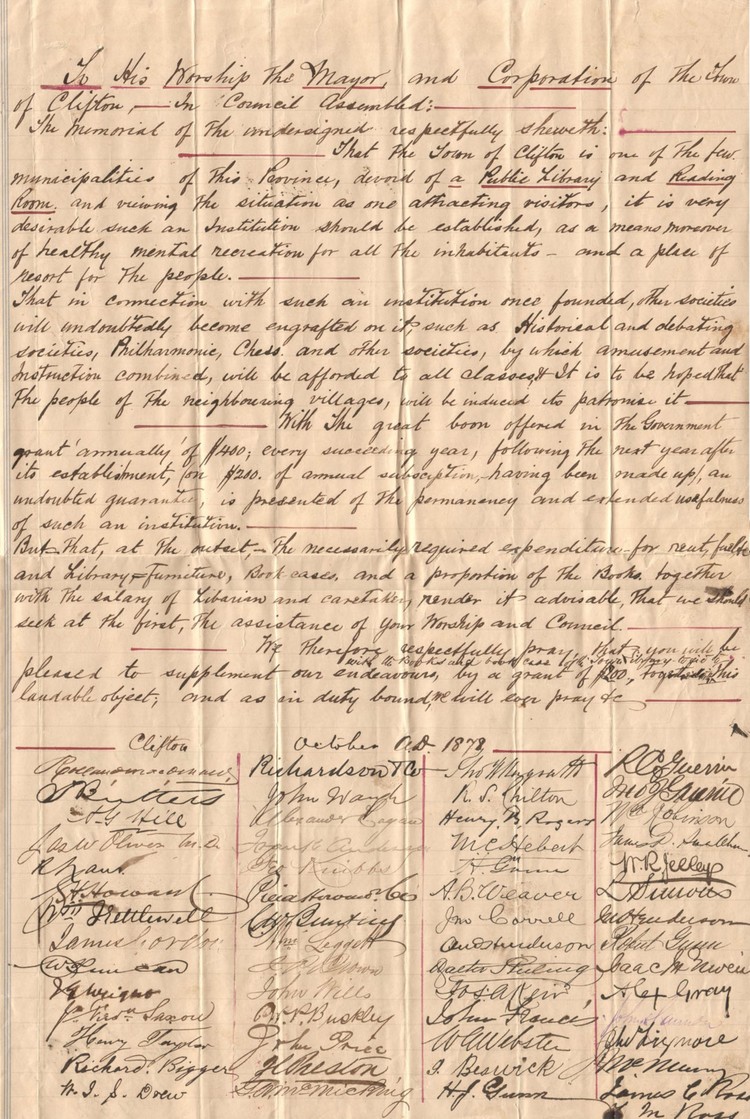 To His Worship the Mayor, and Corporation of the Town
of Clifton, — In Council Assembled: —
The Memorial of the undersigned respectfully sheweth: —
— That the Town of Clifton is one of the few
municipalities of this Province, devoid of a Public Library and Reading
Room and viewing the situation as one attracting visitors, it is very
desirable such an Institution should be established, as a means moreover
of healthy mental recreation for all the inhabitants — and a place of
resort for the people. —
That in connection with such an institution once founded, other societies
will undoubtedly become engrafted on it, such as Historical and debating
societies, Philharmonic, Chess. and other societies, by which amusement and
Instruction combined, will be afforded to all classes, & It is to be hoped that
the people of the neighbouring villages, will be induced to patronise it —
— With the great boon offered in the Government
grant 'annually' of $400; every succeeding year, following the next year after
its establishment, (on $200. of annual subscription, - having been made up), an
undoubted guarantee, is presented of the permanency and extended usefulness
of such an institution. —
But — that, at the outset, — the necessarily required expenditure for rent, fuel &c
and Library = Furniture, Book cases, and a proportion of the Books, together
with the salary of Librarian and caretaker, render it advisable, that we should
seek at the first, the assistance of your Worship and Council. —
— We therefore respectfully pray, that you will be
with the Books and book case of the
pleased to supplement our endeavours, by a grant of $200, this
laudable object; and as in duty bound, we will ever pray &c —
Clifton October A.D. 1878,
Richardson & Co
R. S. Chilton
John Waugh
A G Hill
Henry N. Rogers
Wm Robinson
Jas W Oliver M.D.
McHebert
Geo Knibbs
W. R. Jelley
A. B. Weaver
Wm Kettlewell
Jno Correll
James Gordon
Wm Leggett
Robert Gunn
W Duncan
John Mills
Alex Gray
O. P. Buckley
John Francis
Henry Taylor
John Price
W. A. Webster
Richard. Bigger
H Preston
J. Beswick
W. J. S. Drew
H. J. Gunn
James C Ross